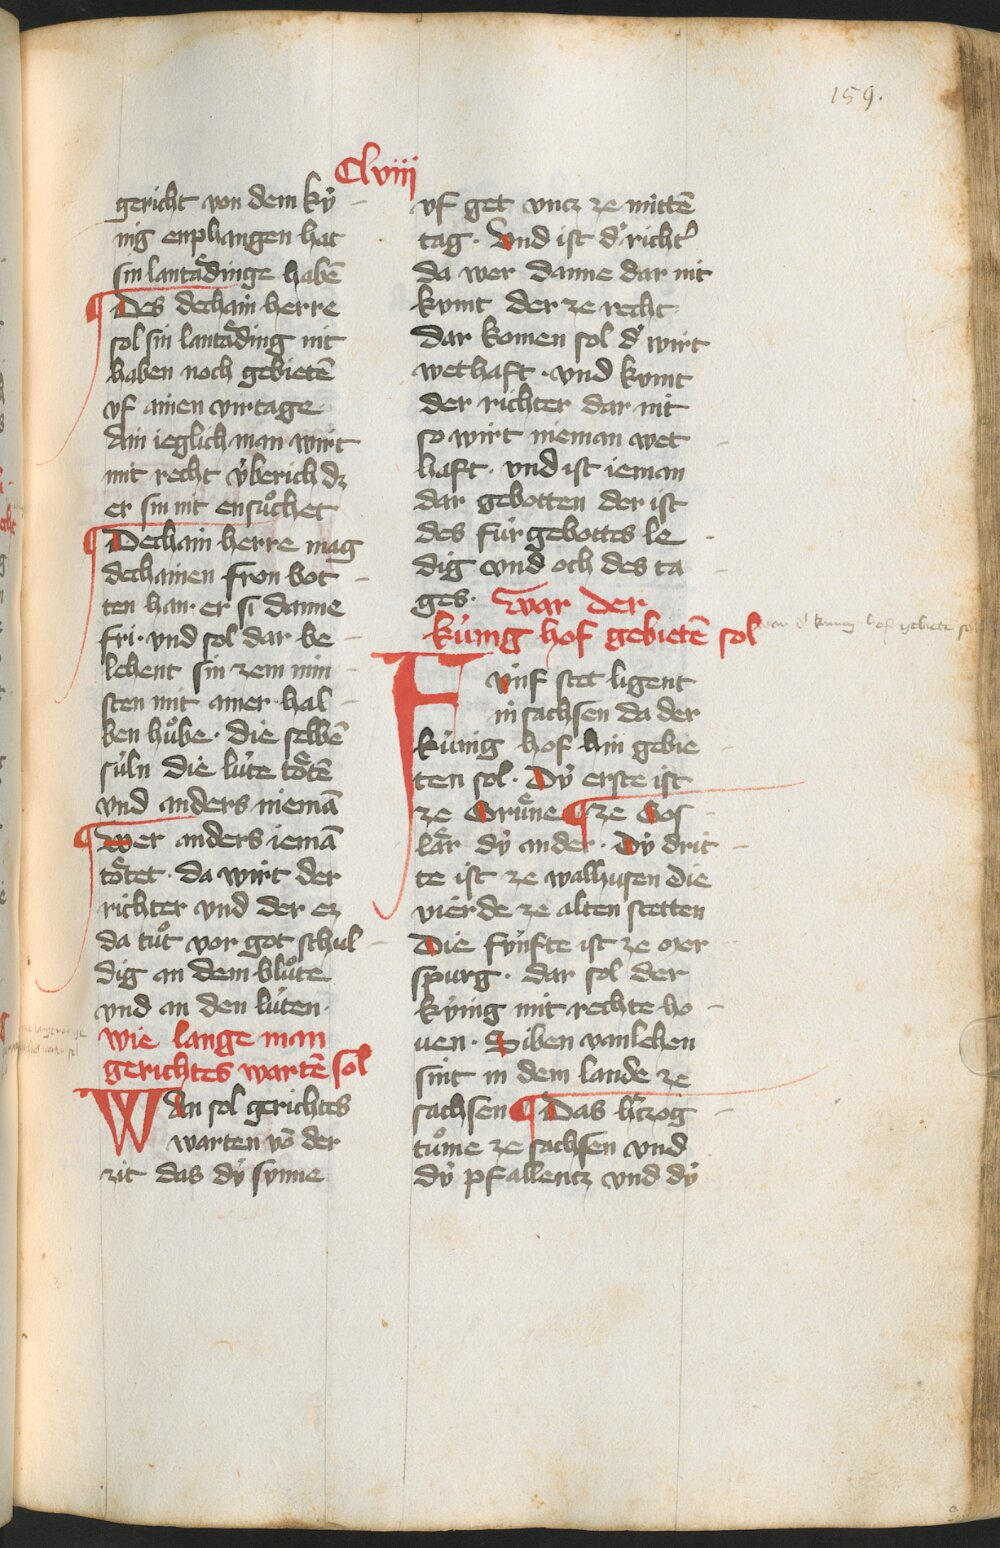 159.
Clviii
gericht von dem kẏ
nig enphangen hat
sin lantaͤdinge habē
Des dechain herre
sol sin lantaͤding nit
haben noch gebietē
vf ainen virtage
Ain ieglich man wirt
mit recht v̇berich dz
er sin nit ensuͦchet
Dechain herre mag
dechainen fron bot
ten han· er si danne
fri· vnd sol dar be
lehent sin zem min
sten mit ainer hal
ben huͦbe· die selbē
suͤln die luͤte toͤtē
vnd anders niemā
wer anders iemā
toͤtet· da wirt der
richter vnd der ez
da tuͦt vor got schul
dig an dem bluͦte
vnd an den luͤten·
wie lange man
gerichtes wartē sol
WAn sol gerichtes
warten vō der
zit das dẏ sỳnne
vf get vncz ze mittē
tag· Vnd ist d' richt'
da wer danne dar nit
kvmt der ze recht
dar komen sol d' wirt
wethaft· vnd kvmt
der richter dar nit
so wirt nieman wet
haft· vnd ist ieman
dar gebotten der ist
des fuͤrgebottes le
dig vnd och des ta
ges· war der
kuͤnig hof gebietē sol
war d' kunig hof gebiete sol
Fvnf stet ligent
in sachsen da der
kuͤnig hof hin gebie
ten sol· Dẏ erste ist
ze Gruͤne ze Gos
laͤr dẏ ander· Dẏ drit
te ist ze walhusen Die
vierde ze alten stetten
Die fẏnfte ist ze mer
spurg· dar sol der
kẏnig mit rechte ho
uen· Siben vanlehen
sint in dem lande ze
sachsen Das h'czog
tuͦme ze sachsen vnd
dẏ pfallencz vnd dẏ